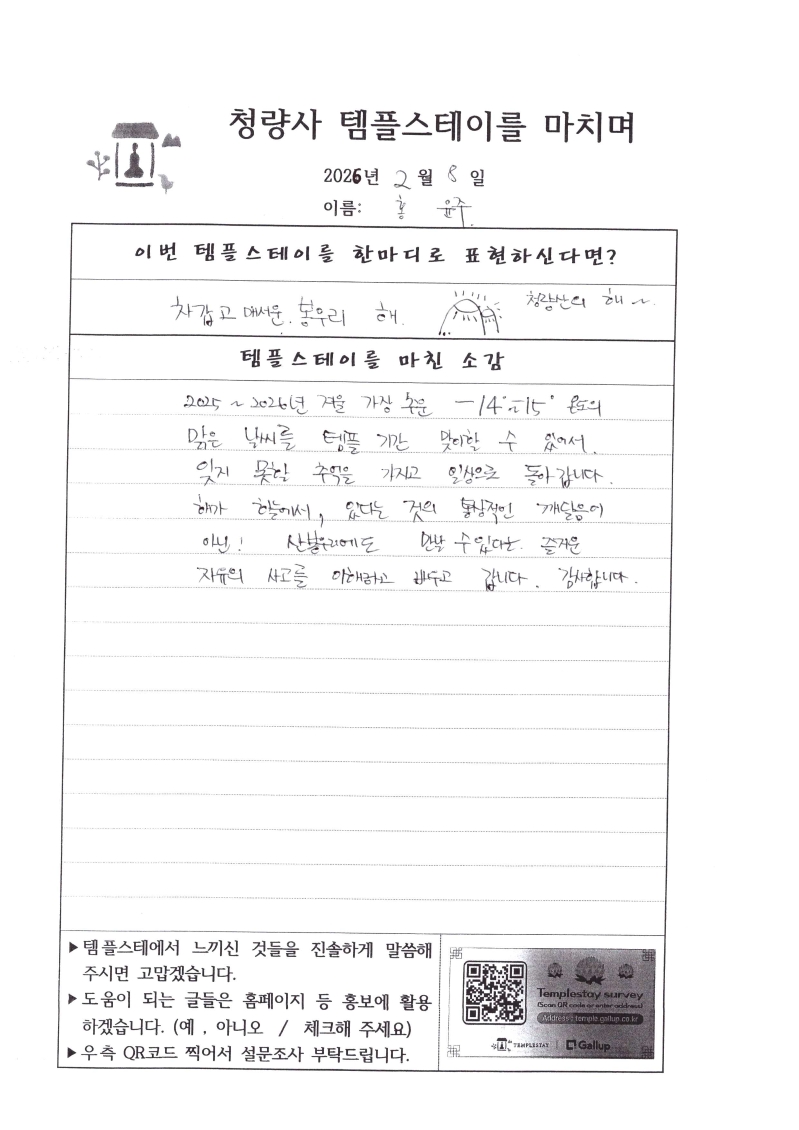 청량사 템플스테이를 마치며
2026년 2월 8일
이름: 홍 윤주.
이번 템플스테이를 한마디로 표현하신다면?
차갑고 매서운. 봉우리 해. 청량산의 해~
템플스테이를 마친 소감
2025~2026년 겨울 가장 추운 -14°~-15° 온도의
맑은 날씨를 템플 기간 맞이할 수 있어서.
잊지 못할 추억을 가지고 일상으로 돌아갑니다.
해가 하늘에서, 있다는 것의 통상적인 깨달음이
아닌! 산봉우리에도 만날 수 있다는. 즐거운
자유의 사고를 이해하고 배우고 갑니다. 감사합니다.
▶템플스테에서 느끼신 것들을 진솔하게 말씀해
주시면 고맙겠습니다.
▶도움이 되는 글들은 홈페이지 등 홍보에 활용
하겠습니다. (예 , 아니오 / 체크해 주세요)
▶우측 QR코드 찍어서 설문조사 부탁드립니다.
Templestay survey
(Scan QR code or enter address)
Address : temple.gallup.co.kr
TEMPLESTAY | Gallup